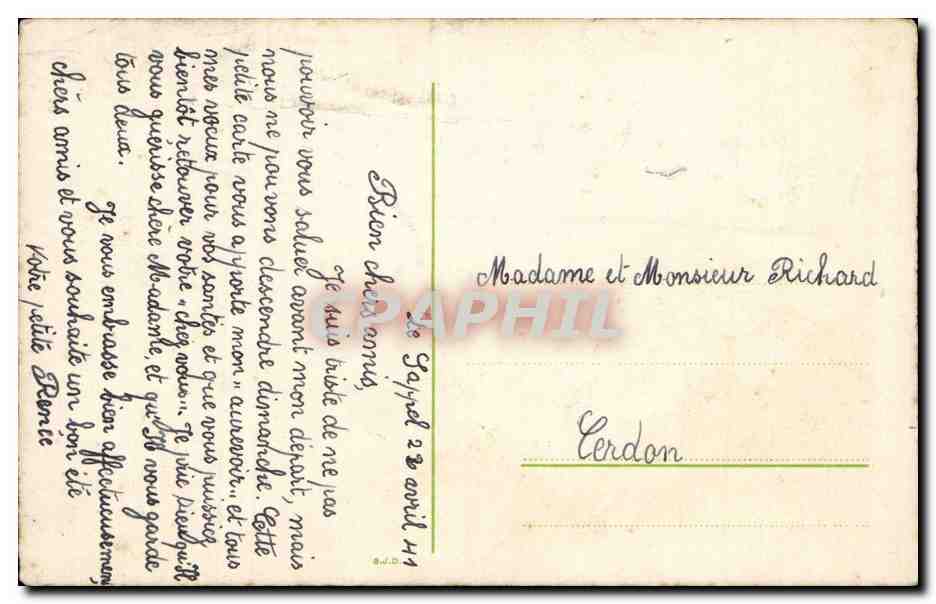 Le Sappel 22 avril 41
Bien chers amis,
Je suis triste de ne pas
pouvoir vous saluer avant mon départ, mais
nous ne pouvons descendre dimanche. Cette
petite carte vous apporte mon "aurevoir" et tous
mes vœux pour vos santés et que vous puissiez
bientôt retouver votre "chez vous". Je prie Dieu qu'Il
vous guérisse chère Madame, et qu'Il vous garde
tous deux.
Je vous embrasse bien affectueusement,
chers amis et vous souhaite un bon été
Votre petite Renée
B.J.D.
Madame et Monsieur Richard
Cerdon
CPAPHIL